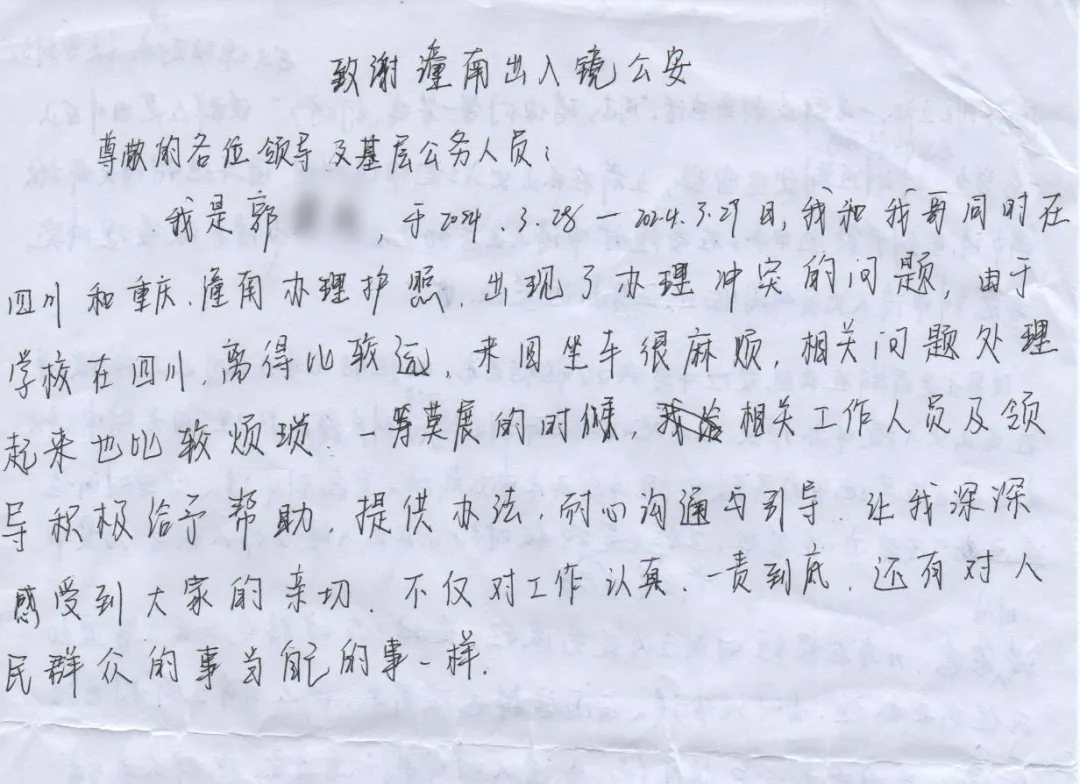 致谢潼南出入镜公安
尊敬的各位领导及基层公务人员：
我是郭 ，于2024.3.28—2024.3.29日，我和我哥同时在
四川和重庆.潼南办理护照.出现了办理冲突的问题，由于
学校在四川.离得比较远.来回坐车很麻烦.相关问题处理
起来也比较烦琐.一筹莫展的时候.相关工作人员及领
导积极给予帮助.提供办法.耐心沟通与引导.让我深深
感受到大家的亲切.不仅对工作认真.一责到底.还有对人
民群众的事当自己的事一样.